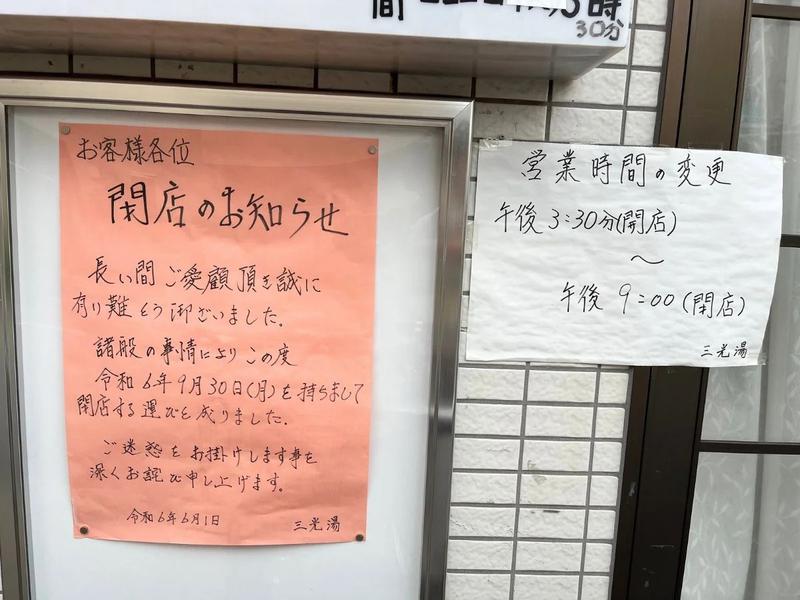 間
時
30分
お客様各位
閉店のお知らせ
長い間ご愛顧頂き誠に
有り難とう御ざいました。
諸般の事情によりこの度
令和6年9月30日(月)を持ちまして
閉店する運びと成りました。
ご迷惑をお掛けします事を
深くお詫び申し上げます。
令和6年6月1日 三光湯
営業時間の変更
午後3:30分(開店)
〜
午後9:00(閉店)
三光湯